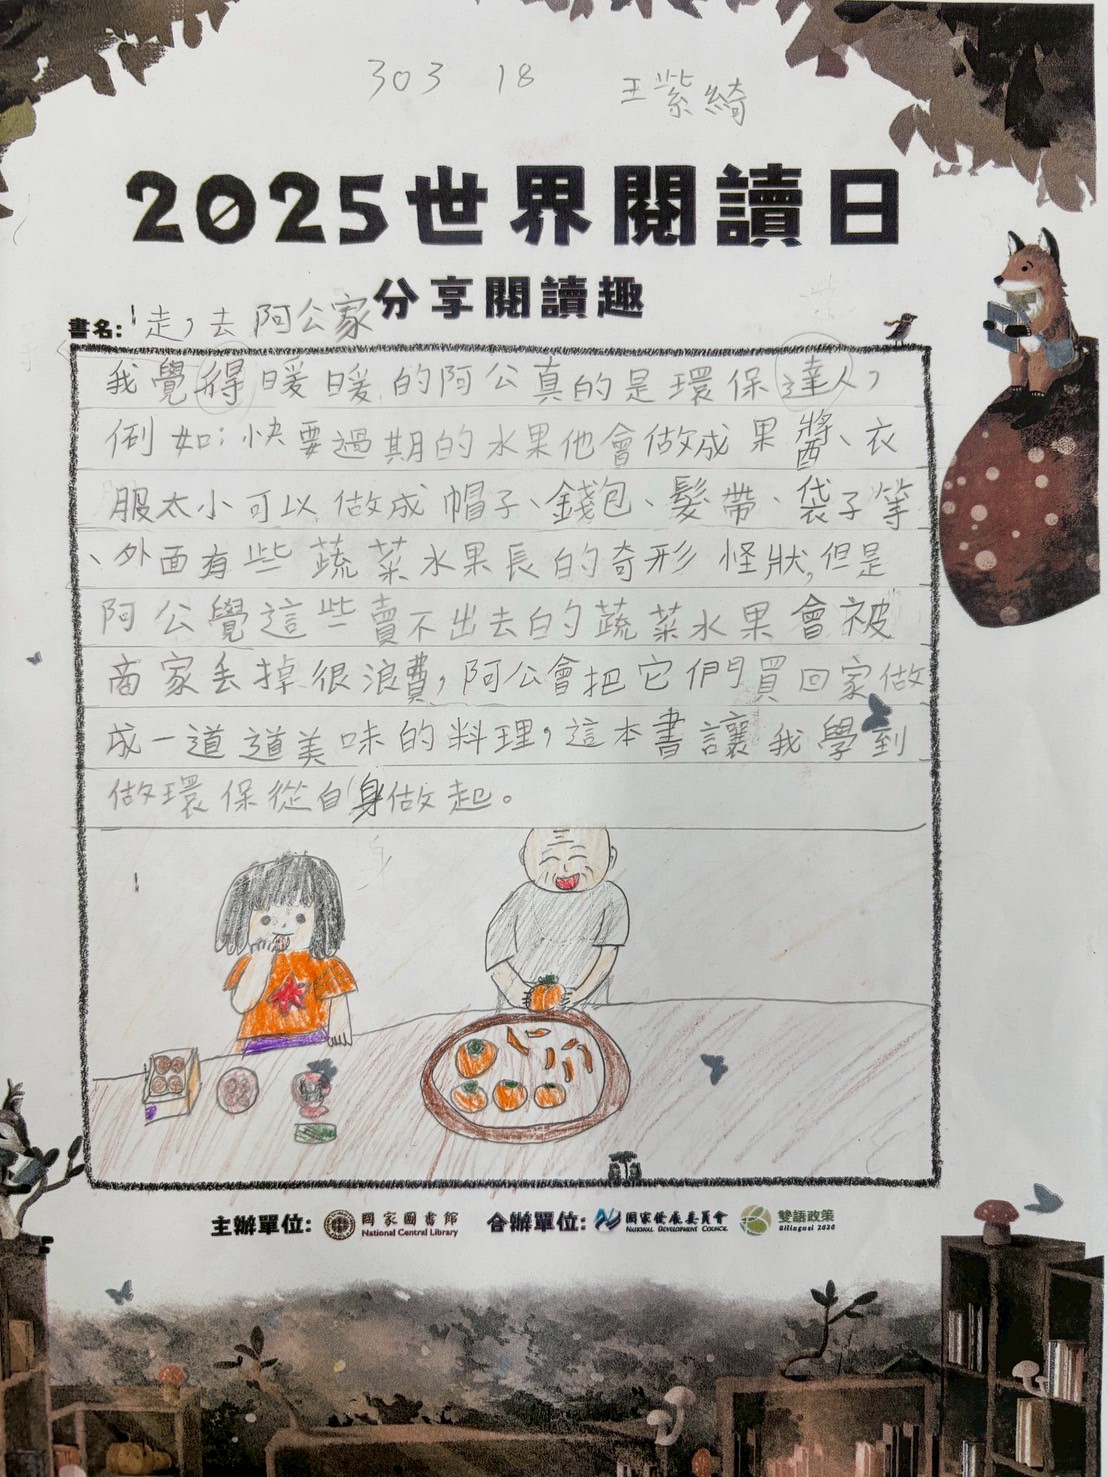 303 18 王紫綺
2025世界閱讀日
分享閱讀趣
書名:走,去阿公家
我覺得暖暖的阿公真的是環保達人,
例如:快要過期的水果他會做成果醬、衣
服太小可以做成帽子、錢包、髮帶、袋子等
、外面有些蔬菜水果長的奇形怪狀,但是
阿公覺這些賣不出去的蔬菜水果會被
商家丟掉很浪費,阿公會把它們買回家做
成一道道美味的料理,這本書讓我學到
做環保從自身做起。
主辦單位: 國家圖書館 National Central Library 合辦單位: 國家發展委員會 National Development Council 雙語政策 Bilingual 2030